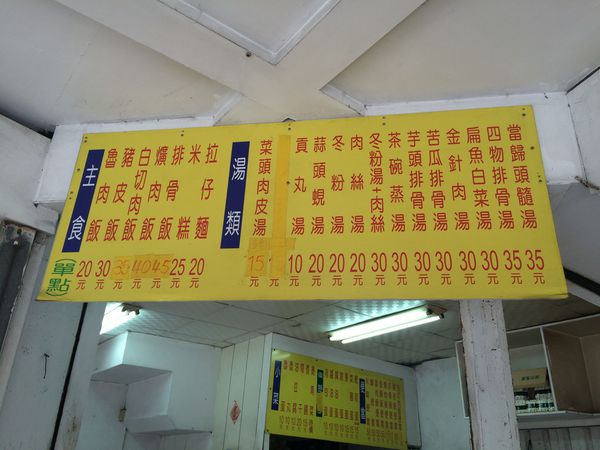 主食
(單點)
魯肉飯 20元
豬皮飯 30元
白切肉飯 35元
爌肉飯 40元
排骨飯 45元
米糕 25元
拉仔麵 20元
湯類
菜頭肉皮湯 15元
貢丸湯 10元
蒜頭蜆湯 20元
冬粉湯 20元
肉絲湯 20元
冬粉湯+肉絲 30元
茶碗蒸湯 30元
芋頭排骨湯 30元
苦瓜排骨湯 30元
金針肉湯 30元
扁魚白菜湯 30元
四物排骨湯 35元
當歸頭髓湯 35元
小菜